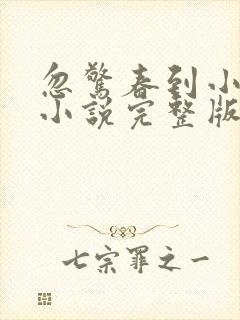 忽驚春到小
小說完整版
七宗罪之一